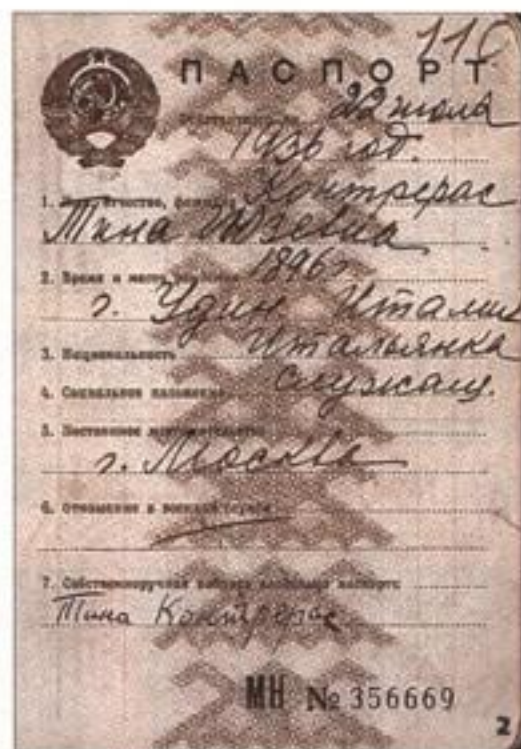 116
ПАСПОРТ
Действителен по 22 июля
1936 год.
1. Имя, отчество, фамилия Контрерас
Тина Юзевна
2. Время и место рождения 1896 г
г. Удин Италия
3. Национальность Итальянка
4. Социальное положение Служащ.
5. Постоянное местожительство
г. Москва
6. Отношение к военной службе
7. Собственноручная подпись владельца паспорта
Тина Контрерас
МН № 356669
2